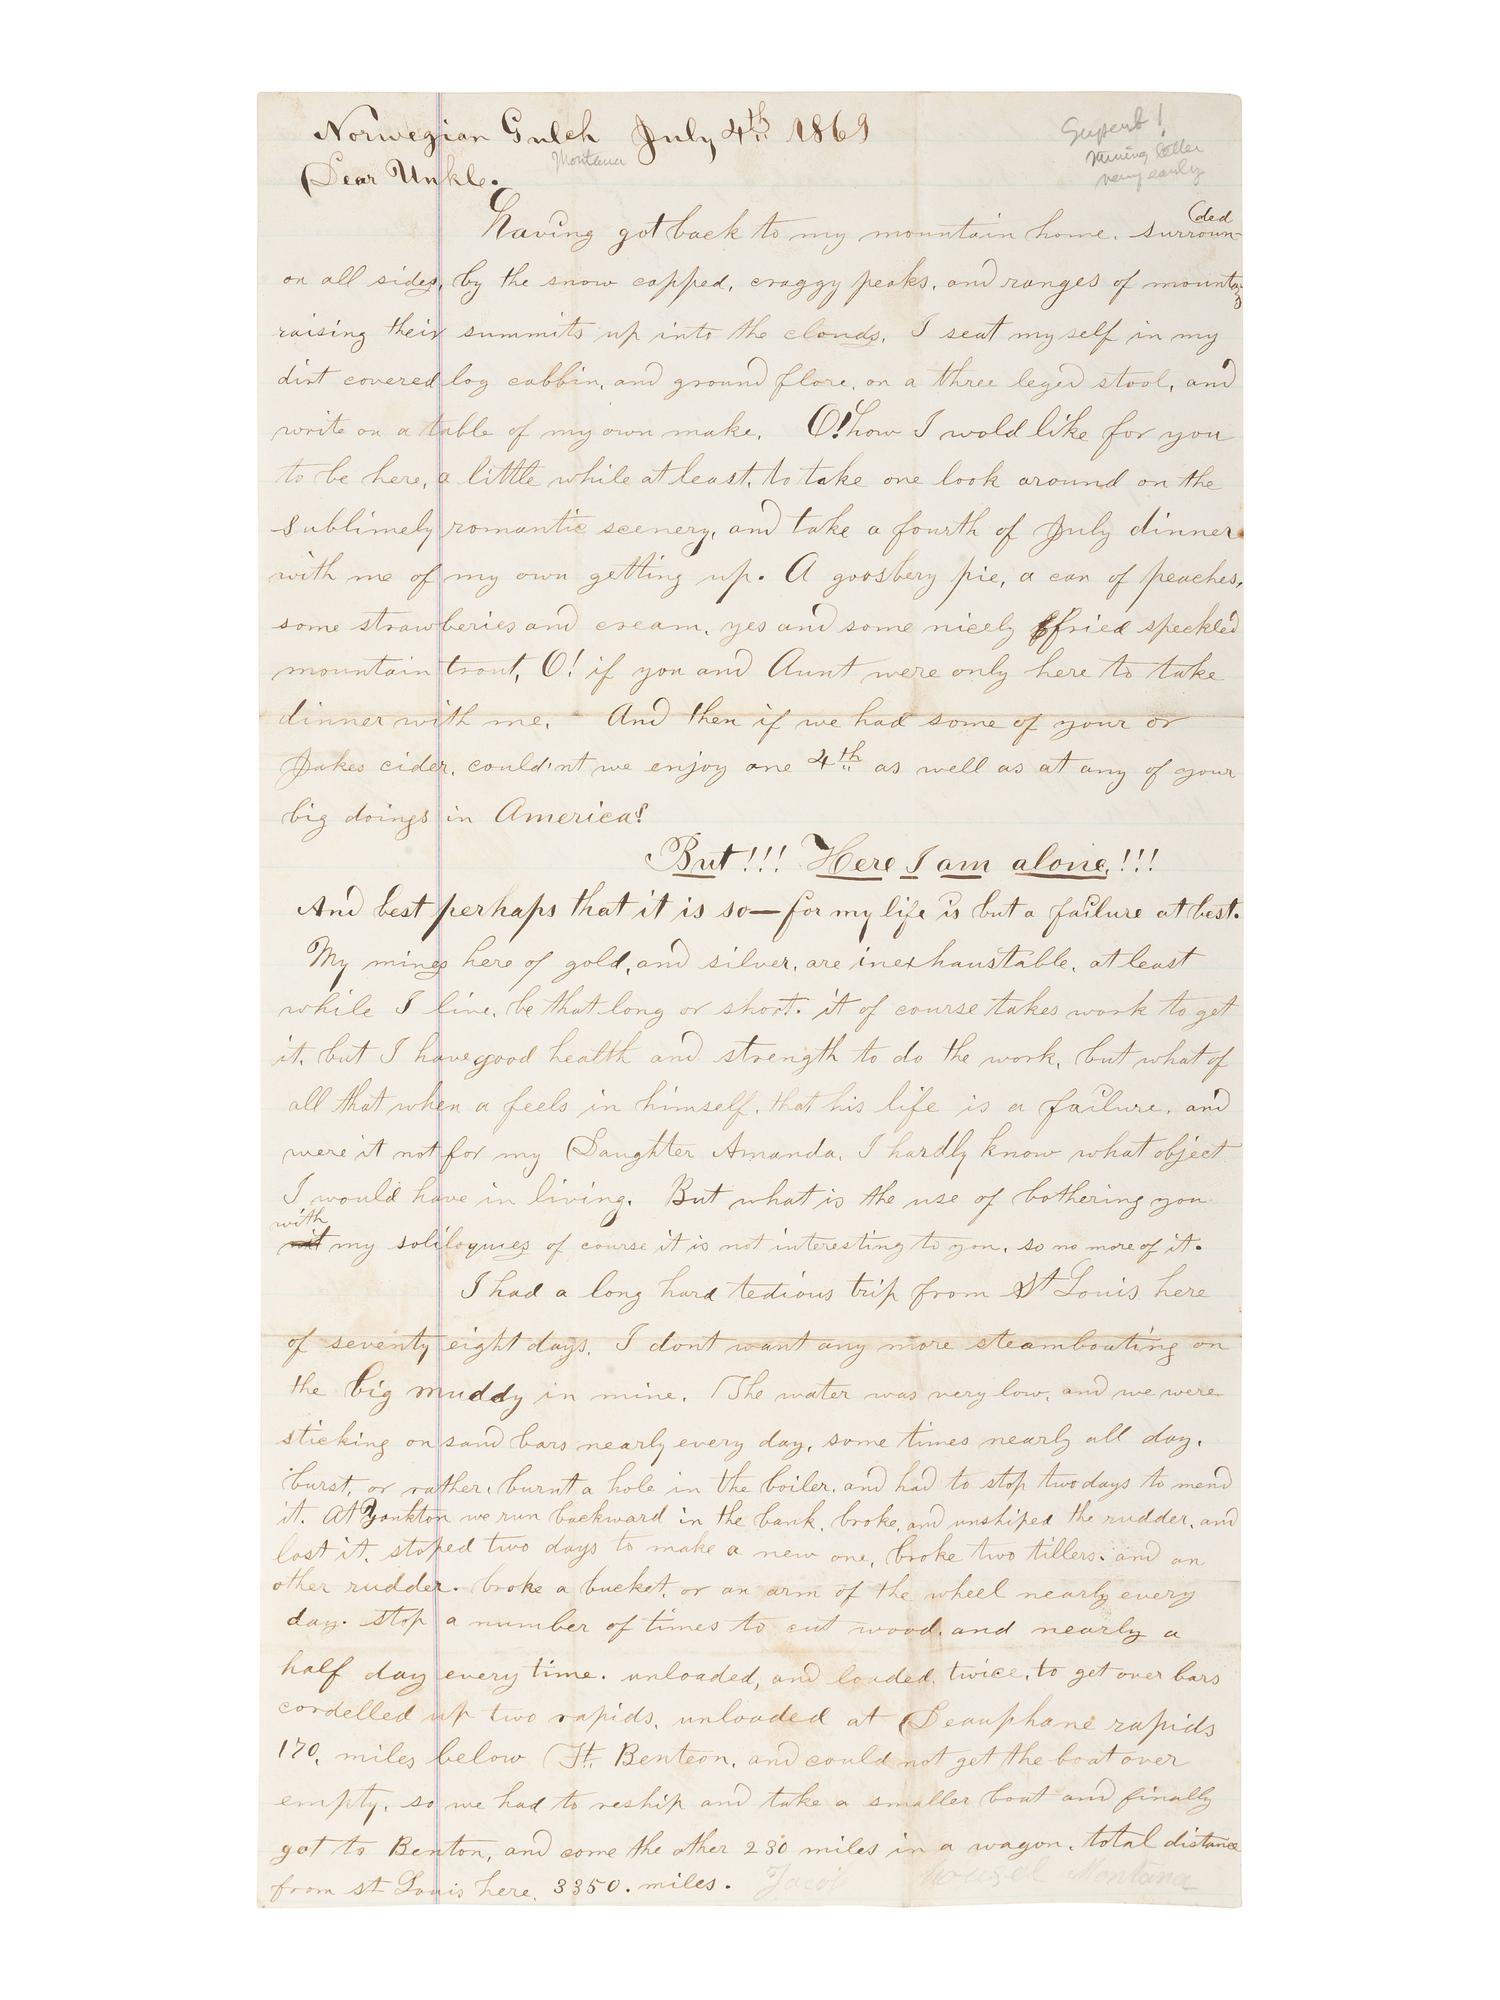 Norwegian Gulch July 4th 1869
Superb!
Mining letter
very early
Montana
Dear Unkle.
Having got back to my mountain home. surroun-
(ded
on all sides, by the snow capped, craggy peaks, and ranges of mountains
raising their summits up into the clouds, I seat my self in my
dirt covered log cabbin, and ground flore, on a three leged stool, and
write on a table of my own make. O! how I wold like for you
to be here, a little while at least, to take one look around on the
sublimely romantic scenery, and take a fourth of July dinner
with me of my own getting up. A goosbery pie, a can of peaches,
some strawberies and cream, yes and some nicely fried speckled
mountain trout, O! if you and Aunt were only here to take
dinner with me. And then if we had some of your or
Jakes cider, could'nt we enjoy one 4th as well as at any of your
big doings in America?
But!!! Here I am alone,!!!
And best perhaps that it is so— for my life is but a failure at best.
My mines here of gold, and silver, are inexhaustable, at least
while I live, be that long or short. it of course takes work to get
it, but I have good health and strength to do the work, but what of
all that when a feels in himself, that his life is a failure, and
were it not for my Daughter Amanda, I hardly know what object
I would have in living. But what is the use of bothering you
with
my soliloquies of course it is not interesting to you, so no more of it.
I had a long hard tedious trip from St Louis here
of seventy eight days, I dont want any more steamboating on
the big muddy in mine. The water was very low, and we were
sticking on sand bars nearly every day, some times nearly all day,
burst, or rather, burnt a hole in the boiler, and had to stop two days to mend
it. At Yankton we run backward in the bank, broke, and unshiped the rudder, and
lost it, stoped two days to make a new one, broke two tillers, and an
other rudder. broke a bucket, or an arm of the wheel nearly every
day. stop a number of times to cut wood, and nearly a
half day every time. unloaded, and loaded, twice, to get over bars
cordelled up two rapids, unloaded at Deauphane rapids
170, miles below Ft. Benteon, and could not get the boat over
empty, so we had to reship and take a smaller boat and finally
got to Benton, and come the other 230 miles in a wagon. total distance
from St Louis here, 3350. miles. Jacob Housel Montana